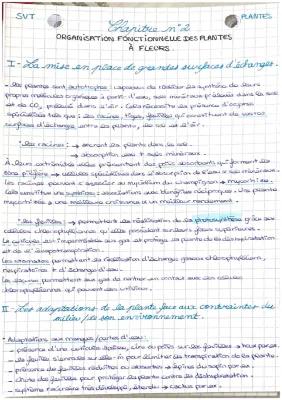 SVT
PLANTES
Chapitre n°2
ORGANISATION FONCTIONNELLE DES PLANTES
À FLEURS.
I - La mise en place de grandes surfaces d'échanges.
- Les plantes sont autotrophes : capables de réaliser la synthèse de leurs
propres molécules organiques à partir d'eau, sels minéraux présents dans le sol
et de CO₂ présent dans l'air. Cela nécessite la présence d'organes
spécialisés tels que : les racines, tiges, feuilles qui constituent de vastes
surfaces d'échange entre les plantes, le sol et l'air.
*les racines : → ancrent les plantes dans le sol.
→ absorption eau + sels minéraux.
À leurs extrémités elles présentent des poils absorbants qui forment la
zone pilifère → cellules spécialisées dans l'absorption de l'eau + sels minéraux.
Les racines peuvent s'associer au mycélium du champignon → mycorhizes.
Cela constitue une symbiose : association aux bénéfices réciproques. Une plante
mycorhizée a une meilleure croissance et un meilleur rendement.
*les feuilles : → permettent la réalisation de la photosynthèse grâce aux
cellules chlorophylliennes qu'elles possèdent sur leurs faces supérieures.
La cuticule est imperméable aux gaz et protège la plante de la déshydratation
et de l'évapotranspiration.
Les stomates permettent la réalisation d'échange gazeux chlorophylliens,
respiratoires + d'échange d'eau.
chlorophylliennes qui peuvent les utiliser.
II - Les adaptations de la plante face aux contraintes du
milieu / de son environnement.
- Adaptations aux manques/pertes d'eau :
- présence d'une cuticule épaisse, cire ou poils sur les feuilles
- présence de feuilles réduites ou absentes → épines du sapin par ex.
- chute des feuilles pour protéger les plantes contre la déshydratation.
- système racinaire très développé, étendu → cactus par ex.